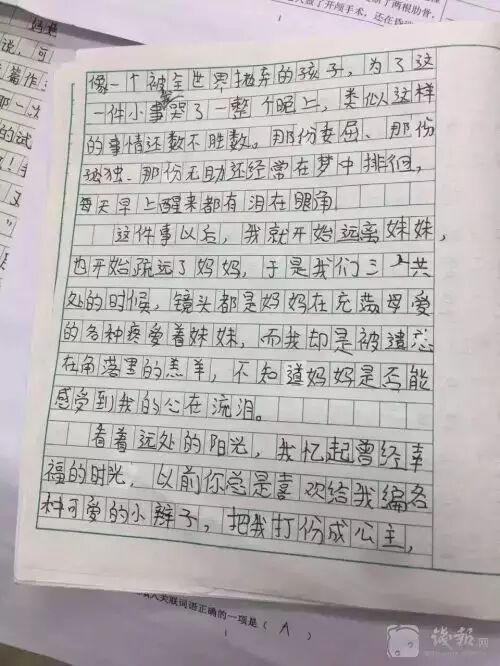 了两根肋骨,
做了开颅手术,还在昏
说,可
篇作
那一次
的试
像一个被全世界抛弃的孩子,为了这
一件小事哭了一整个晚上,类似这样
的事情还数不胜数。那份委屈、那份
孤独、那份无助还经常在梦中排徊,
每天早上醒来都有泪在眼角
这件事以后,我就开始远离妹妹,
也开始疏远了妈妈,于是我们三人共
处的时候,镜头都是妈妈在充满母爱
的各种疼爱着妹妹,而我却是被遗忘
在角落里的羔羊,不知道妈妈是否能
感受到我的心在流泪。
看着远处的阳光,我忆起曾经幸
福的时光,以前你总是喜欢给我编各
种可爱的小辫子,把我打份成公主,
入关联词语正确的一项是( A )
钱報网